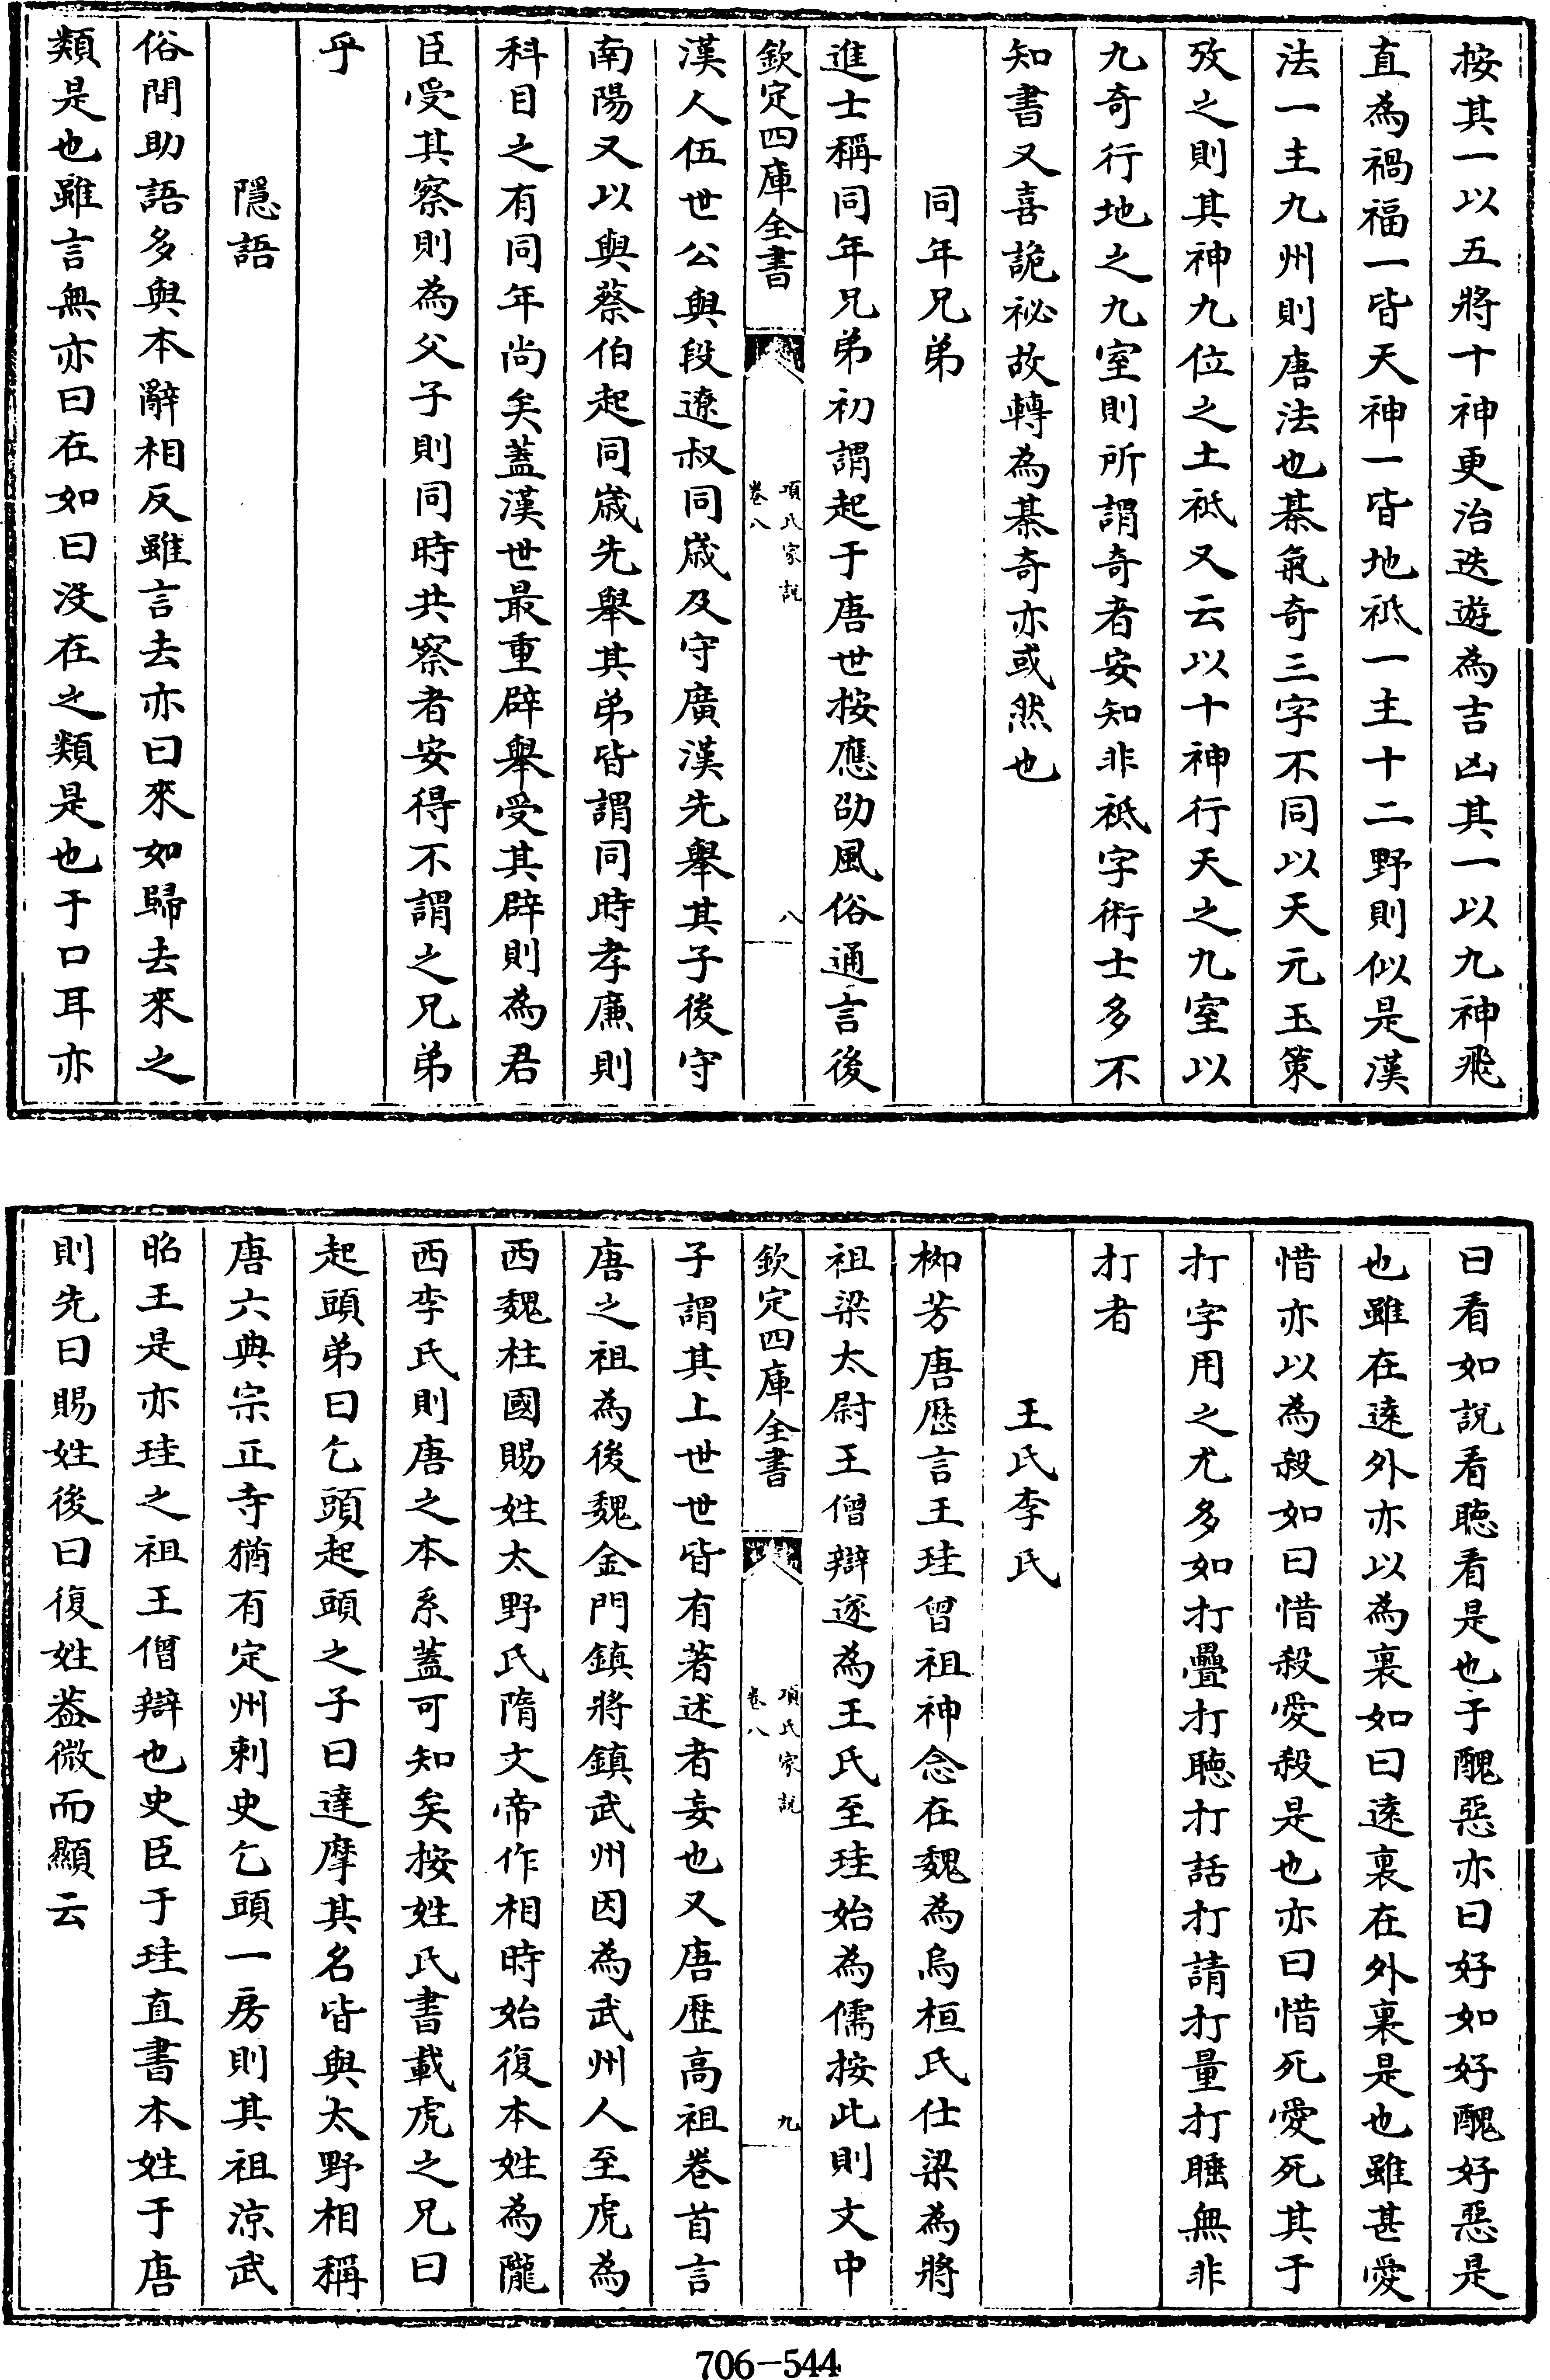 按其一以五將十神更治迭遊為吉凶其一以九神飛
直為禍福一皆天神一皆地祇一主十二野則似是漢
法一主九州則唐法也碁氣奇三字不同以天元玉策
攷之則其神九位之土祇又云以十神行天之九室以
九奇行地之九室則所謂奇者安知非祇字術士多不
知書又喜詭祕故轉為碁奇亦或然也
同年兄弟
進士稱同年兄弟初謂起于唐世按應劭風俗通言後
欽定四庫全書
項氏家說
卷八
八
漢人伍世公與段遼叔同嵗及守廣漢先舉其子後守
南陽又以與蔡伯起同嵗先舉其弟皆謂同時孝廉則
科目之有同年尚矣蓋漢世最重辟舉受其辟則為君
臣受其察則為父子則同時共察者安得不謂之兄弟
乎
隱語
俗間助語多與本辭相反雖言去亦曰來如歸去來之
類是也雖言無亦曰在如曰没在之類是也于口耳亦
曰看如說看聴看是也于醜惡亦曰好如好醜好惡是
也雖在逺外亦以為裏如曰逺裏在外裏是也雖甚愛
惜亦以為殺如曰惜殺愛殺是也亦曰惜死愛死其于
打字用之尤多如打疊打聴打話打請打量打睡無非
打者
王氏李氏
栁芳唐厯言王珪曾祖神念在魏為烏桓氏仕梁為將
祖梁太尉王僧辯遂為王氏至珪始為儒按此則文中
欽定四庫全書
項氏家說
卷八
九
子謂其上世世皆有著述者妄也又唐歴高祖卷首言
唐之祖為後魏金門鎮將鎮武州因為武州人至虎為
西魏柱國賜姓太野氏隋文帝作相時始復本姓為隴
西李氏則唐之本系蓋可知矣按姓氏書載虎之兄曰
起頭弟曰乞頭起頭之子曰達摩其名皆與太野相稱
唐六典宗正寺猶有定州刺史乞頭一房則其祖涼武
昭王是亦珪之祖王僧辯也史臣于珪直書本姓于唐
則先曰賜姓後曰復姓葢微而顯云
706-544